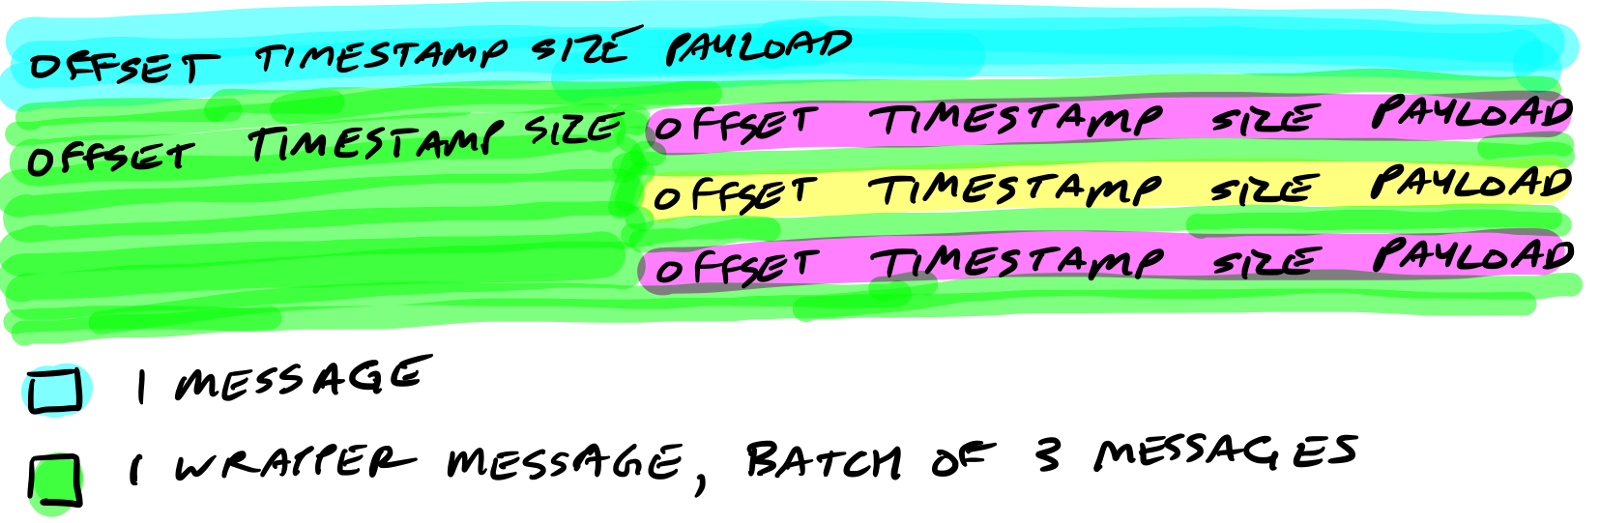 OFFSET TIMESTAMP SIZE PAYLOAD
OFFSET TIMESTAMP SIZE OFFSET TIMESTAMP SIZE PAYLOAD
OFFSET TIMESTAMP SIZE PAYLOAD
OFFSET TIMESTAMP SIZE PAYLOAD
1 MESSAGE
1 WRAPPER MESSAGE, BATCH OF 3 MESSAGES